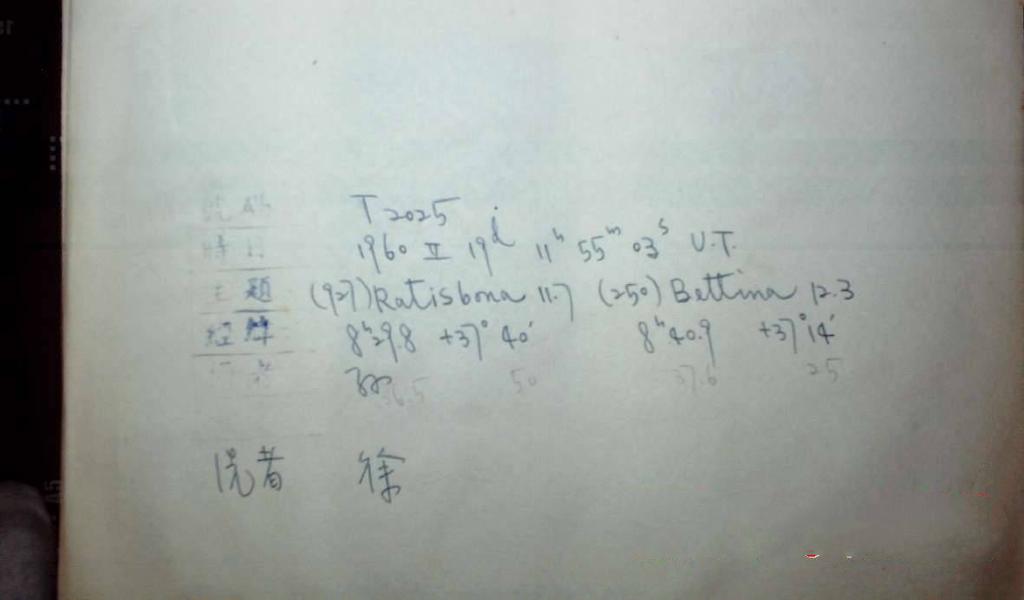 號碼 T 2025
時日 1960 II 19d 11h 55m 03s U.T.
主題 (927) Ratisbona 11.7 (250) Bettina 12.3
經緯 8h 29.8 +37° 40′ 8h 40.9 +37° 14′
36.5 50 37.6 25
者 徐